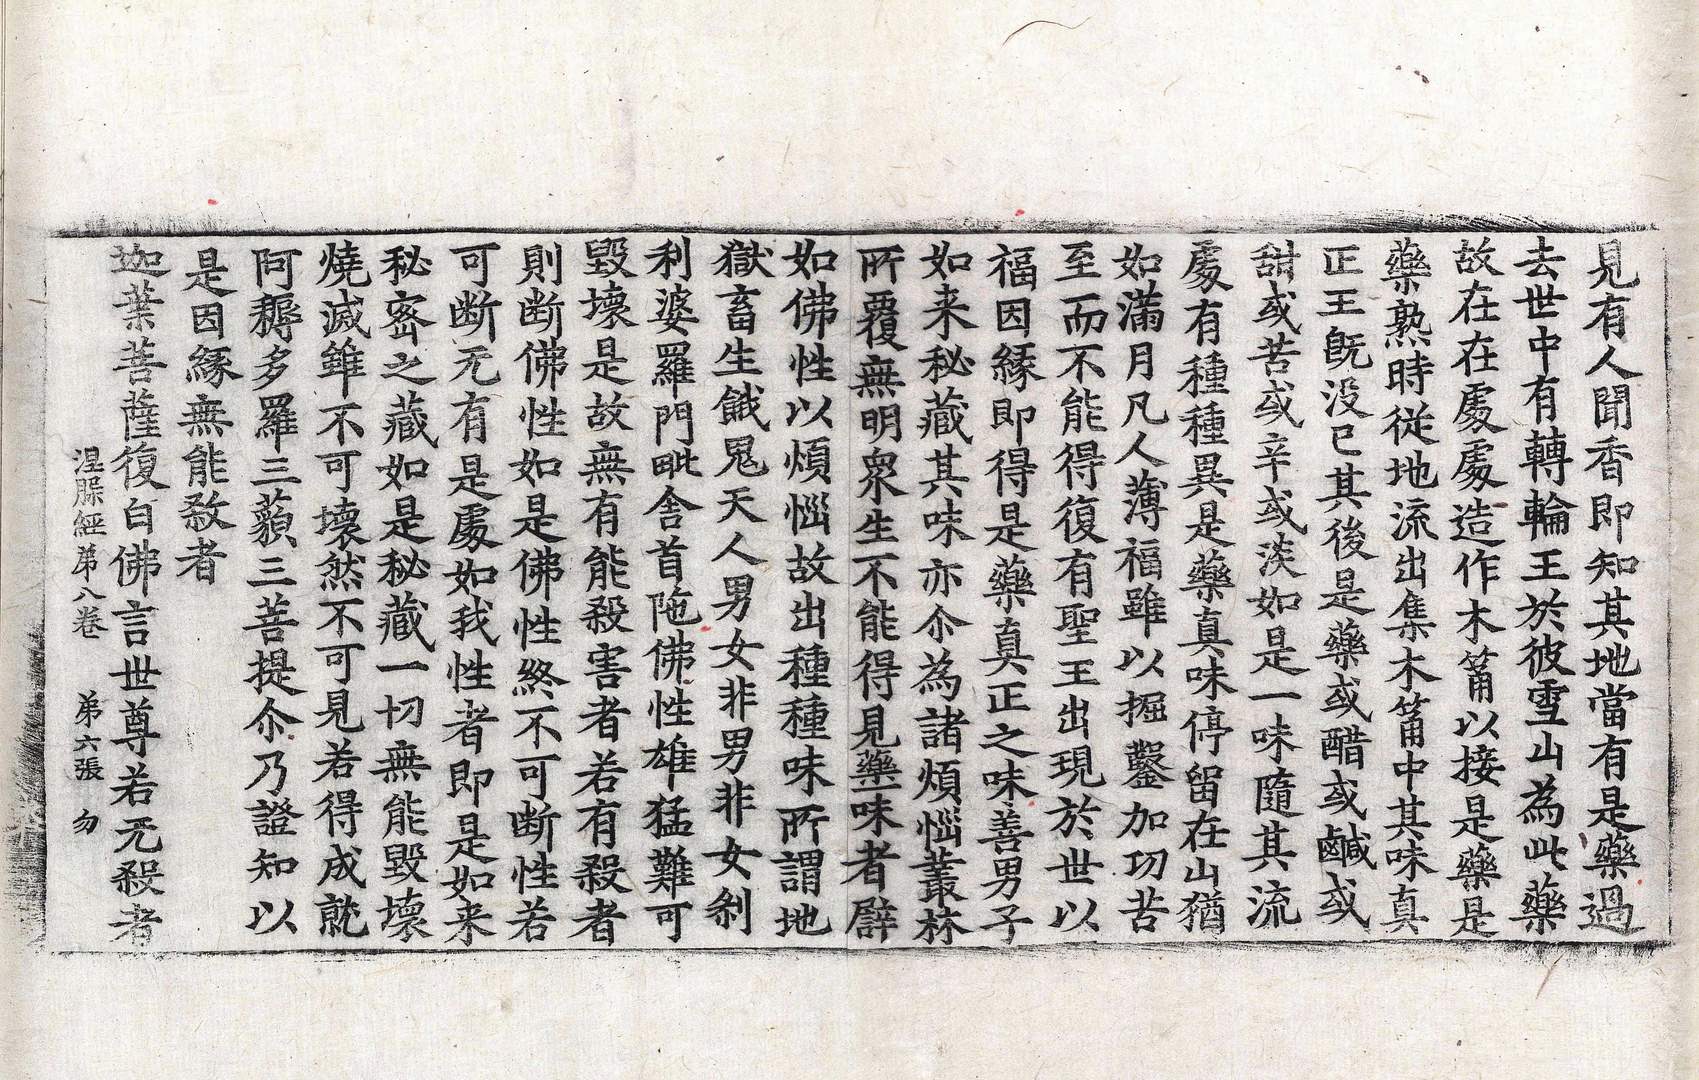 見有人聞香即知其地當有是藥過
去世中有轉輪王於彼雪山為此藥
故在在處處造作木筩以接是藥是
藥熟時從地流出集木筩中其味真
正王旣没已其後是藥或醋或鹹或
甜或苦或辛或淡如是一味隨其流
處有種種異是藥真味停留在山猶
如滿月凡人薄福雖以掘鑿加功苦
至而不能得復有聖王出現於世以
福因緣即得是藥真正之味善男子
如来秘藏其味亦尒為諸煩惱叢林
所覆無明衆生不能得見藥一味者譬
如佛性以煩惱故出種種味所謂地
獄畜生餓鬼天人男女非男非女剎
利婆羅門毗舍首陁佛性雄猛難可
毀壞是故無有能殺害者若有殺者
則断佛性如是佛性終不可断性若
可断无有是處如我性者即是如来
秘密之藏如是秘藏一切無能毀壞
燒滅雖不可壞然不可見若得成就
阿耨多羅三藐三菩提尒乃證知以
是因緣無能煞者
迦葉菩薩復白佛言世尊若无殺者
涅脲經苐八卷 苐六張 勿